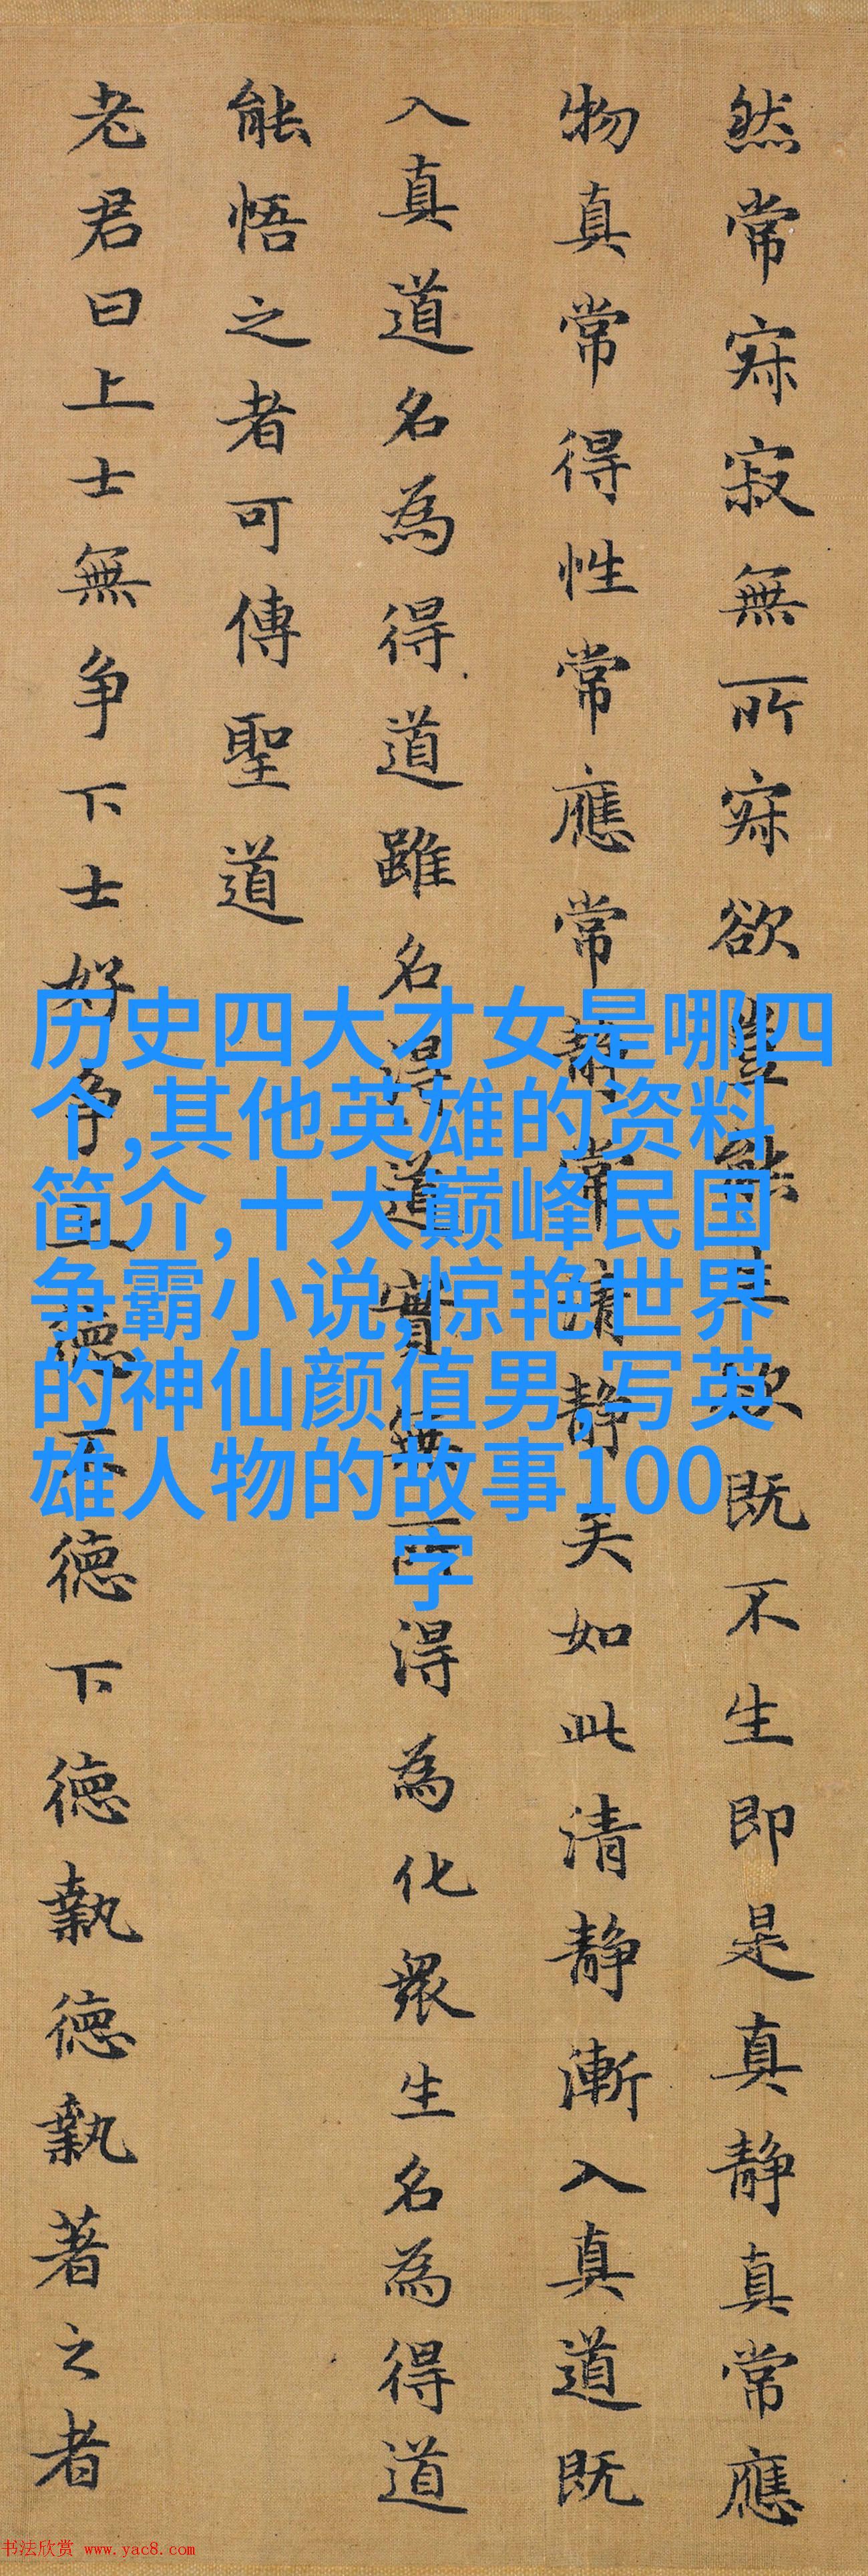 然常寂寂無所寂欲豈能生欲既不生即是真静真常應
物真常得性常應常静常清静矣如此清静漸入真道既
入真道名為得道雖名得道實無所得為化衆生名為得道
能悟之者可傳聖道
老君曰上士無争下士好争上德不德下德執德執著之者
历史四大才女是哪四
个,其他英雄的资料
简介,十大巅峰民国
争霸小说,惊艳世界
的神仙颜值男,写英
雄人物的故事100
字
书法欣赏 www.yac8.com